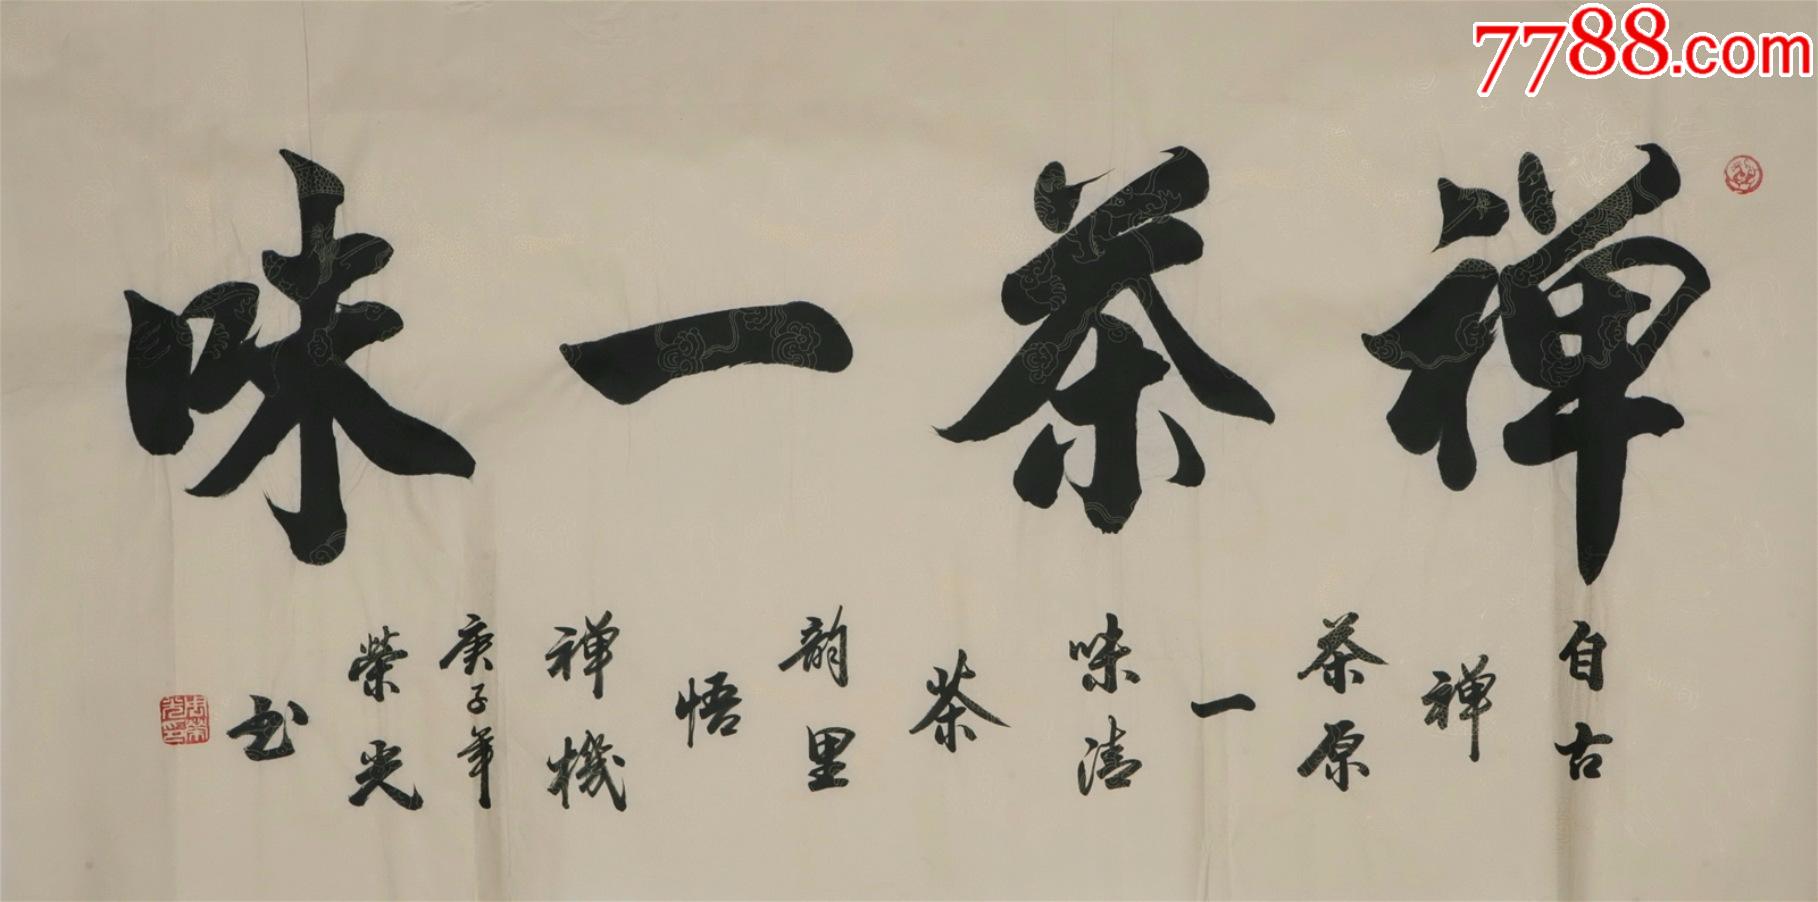 7788.com
禅茶一味
自古
禅
茶原
一
味清
茶
韵里
悟
禅機
庚子年
榮光
书